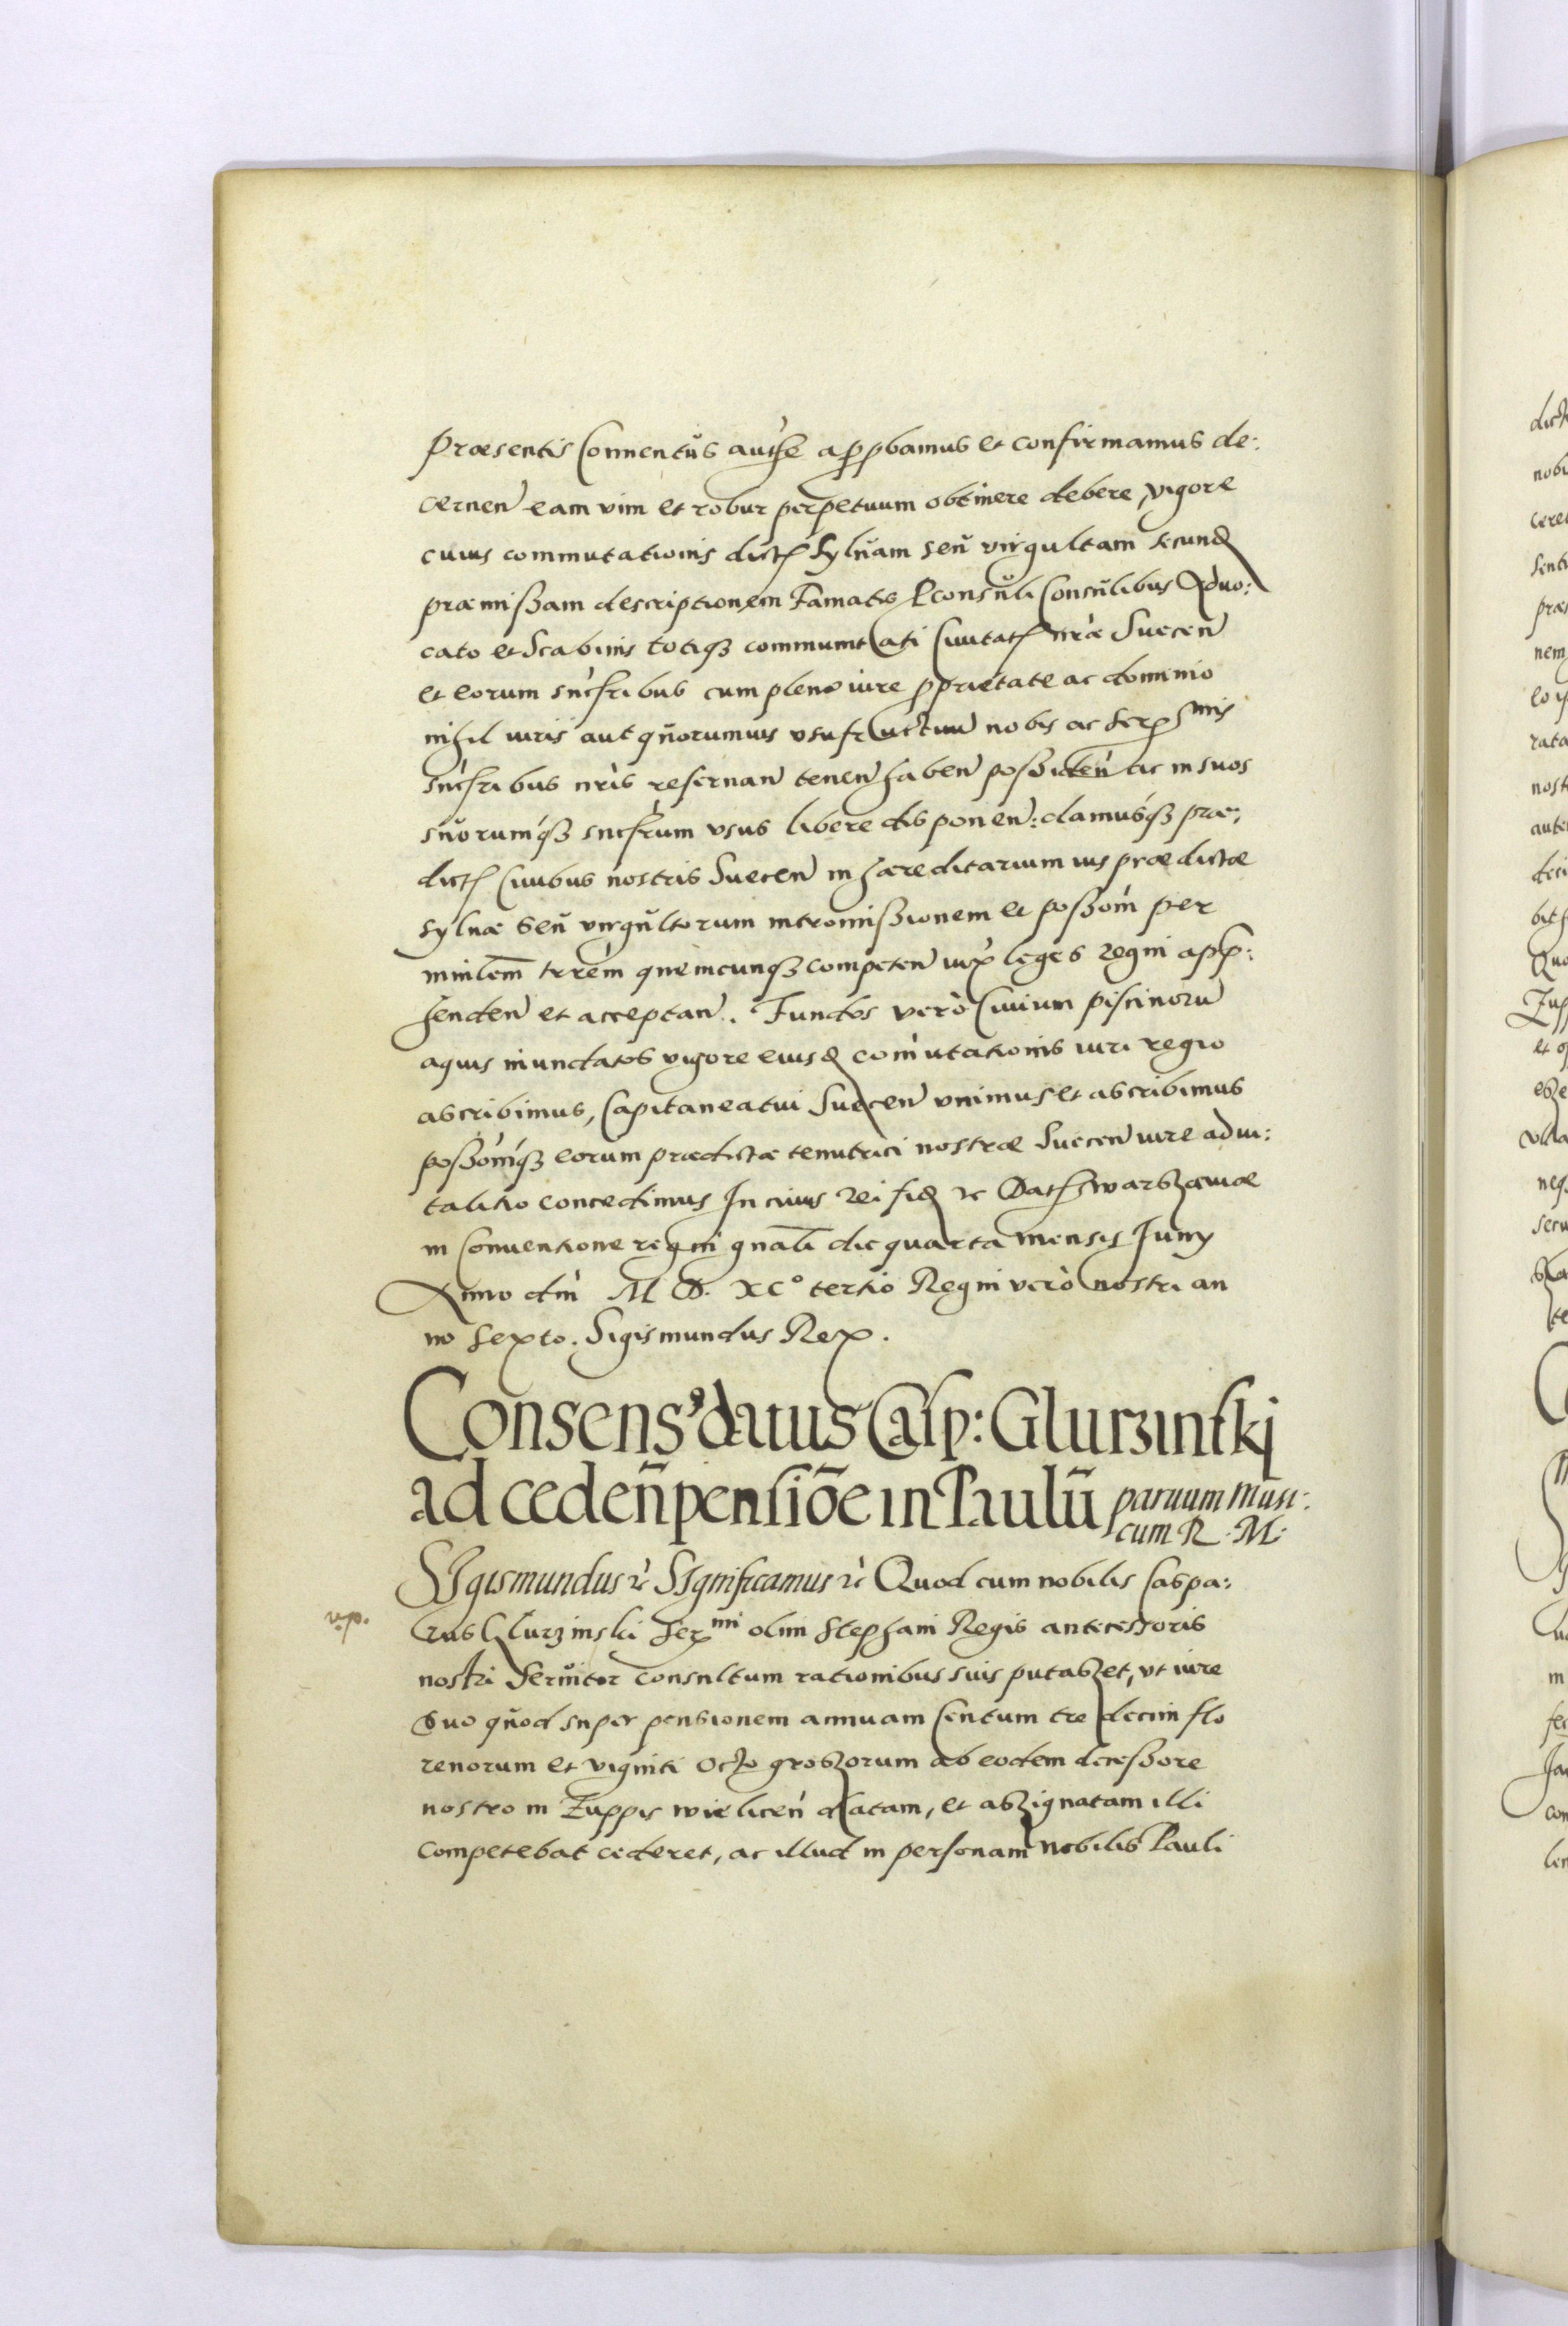 Præsentis Conuentus auth̃e approbamus et confirmamus de:
cernen̄ eam vim et robur perpetuum obtinere debere, vigore
cuius commutationis dict̃ Syluam seu virgultam secund̃
præmissam descriptionem Famatis Pconsuli Consulibus Aduo:
cato et Scabinis totiqꝫ communitati Ciuitat̃ nr̃æ Suecen̄
et eorum sucr̃ibus cum pleno iure pprietate ac dominio
nihil iuris aut quorumuis vsufructuum nobis ac Serᵐⁱˢ
sucr̃ibus nr̃is reseruan̄ tenen̄ haben̄ possiden̄ ac in suos
suorumqꝫ sucr̃um vsus libere disponen̄: damusqꝫ præ:
dict̃ Ciuibus nostris Suecen̄ in hæreditarium ius prædictæ
Syluæ seu virgultorum intromissionem et possōm per
minlem̄ terr̃em quemcunqꝫ competen̄ iux̃ leges regni app:
henden̄ et acceptan̄. Fundos verò Ciuium piscinorū
aquis inundatos vigore eiusd̃ com̄utationis iuri regio
ascribimus, Capitaneatui Suecen̄ vnimus et ascribimus
possōmqꝫ eorum prædictæ tenutrici nostræ Suecen̄ iure adui:
talitio concedimus In cuius rei fid̃ ꝛc Dat̃ Warszauiæ
in Conuentione regni gnali die quarta mensis Iunij
Anno dn̄i M D. XC° tertio Regni verò nostri an
no Sexto. Sigismundus Rex.
Consensꝰ datus Casp: Glurzinski
ad ceden̄ pensiōe in Paulū paruum Musi:
cum R. M.
Sigismundus ꝛc Significamus ꝛc Quod cum nobilis Caspa:
rus Glurzinski Serᵐⁱ olim Stephani Regis antecessoris
nostri Seruitor consultum rationibus suis putasset, vt iure
suo quod super pensionem annuam Centum tredecim flo
renorum et viginti octo grossorum ab eodem decessore
nostro in Zuppis wielicen̄ datam, et assignatam illi
competebat cederet, ac illud in personam nobilis Pauli